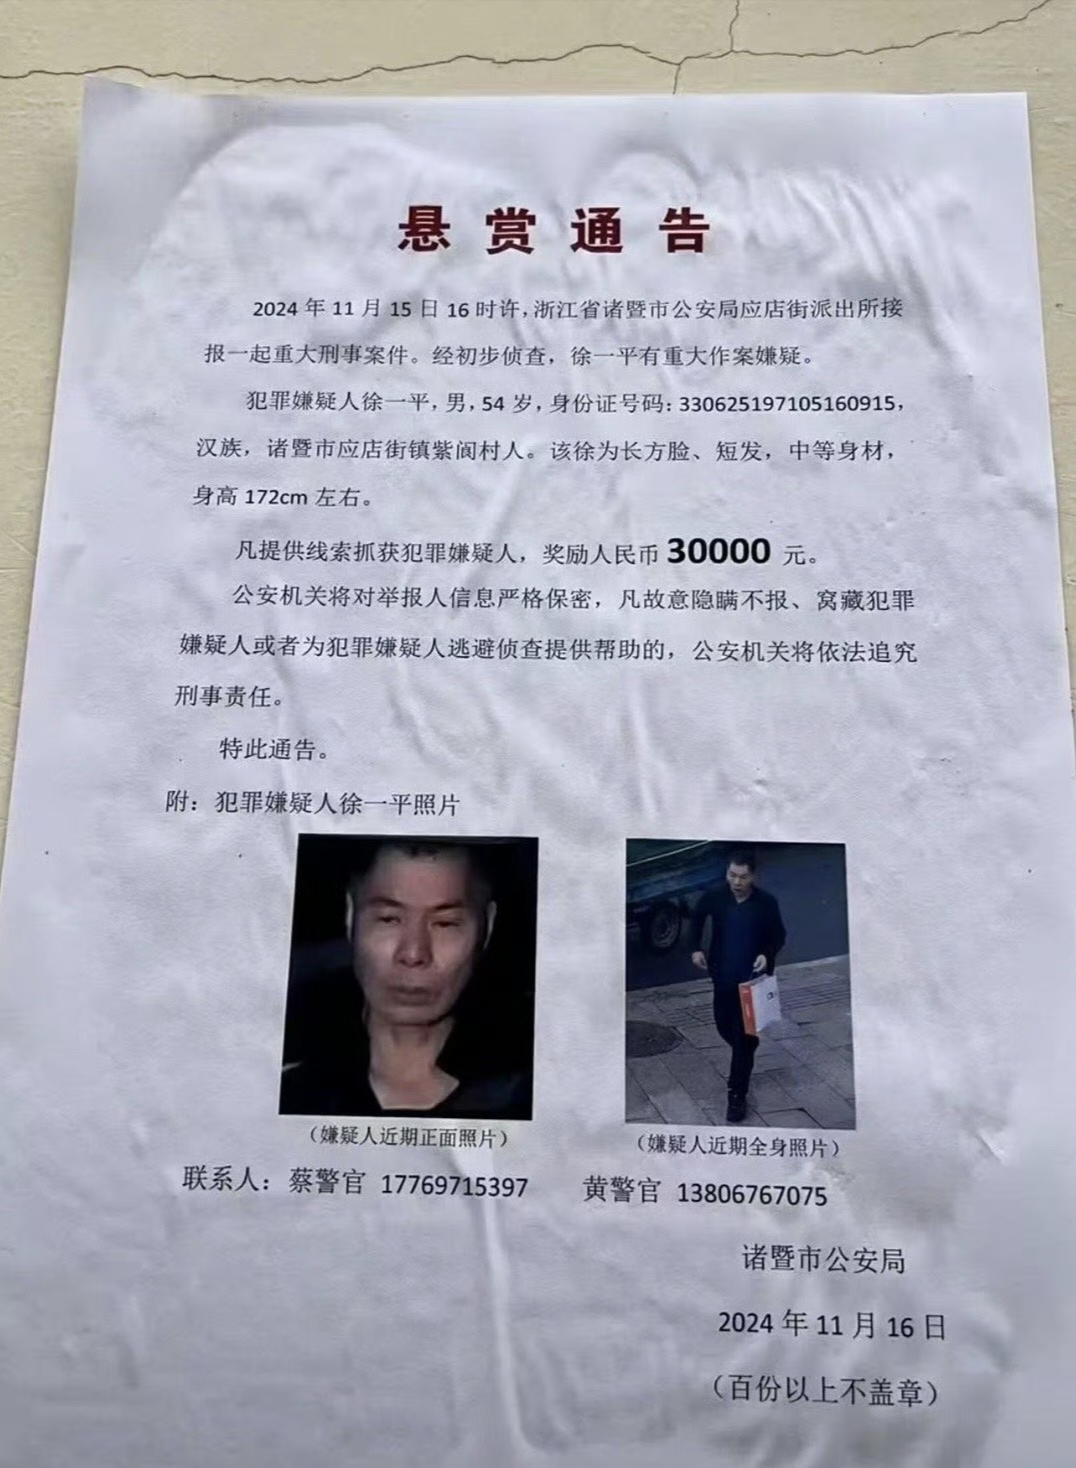 悬赏通告
2024年11月15日16时许，浙江省诸暨市公安局应店街派出所接
报一起重大刑事案件。经初步侦查，徐一平有重大作案嫌疑。
犯罪嫌疑人徐一平，男，54岁，身份证号码：330625197105160915，
汉族，诸暨市应店街镇紫阆村人。该徐为长方脸、短发，中等身材，
身高172cm左右。
凡提供线索抓获犯罪嫌疑人，奖励人民币30000元。
公安机关将对举报人信息严格保密，凡故意隐瞒不报、窝藏犯罪
嫌疑人或者为犯罪嫌疑人逃避侦查提供帮助的，公安机关将依法追究
刑事责任。
特此通告。
附：犯罪嫌疑人徐一平照片
（嫌疑人近期正面照片） （嫌疑人近期全身照片）
联系人：蔡警官 17769715397 黄警官 13806767075
诸暨市公安局
2024年11月16日
（百份以上不盖章）